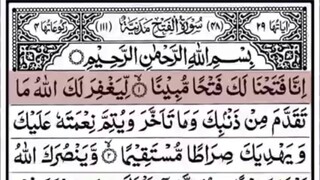 اٰیَاتُهَا ٢٩ (٤٨) سُوْرَةُ الْفَتْحِ مَدَنِیَّةٌ (١١١) رُكُوْعَاتُهَا ٤
بِسْمِ اللّٰهِ الرَّحْمٰنِ الرَّحِیْمِ
اِنَّا فَتَحْنَا لَكَ فَتْحًا مُّبِیْنًا ۙ١ لِّیَغْفِرَ لَكَ اللّٰهُ مَا
تَقَدَّمَ مِنْ ذَنْۢبِكَ وَمَا تَاَخَّرَ وَیُتِمَّ نِعْمَتَهٗ عَلَیْكَ
وَیَهْدِیَكَ صِرَاطًا مُّسْتَقِیْمًا ۙ٢ وَّیَنْصُرَكَ اللّٰهُ